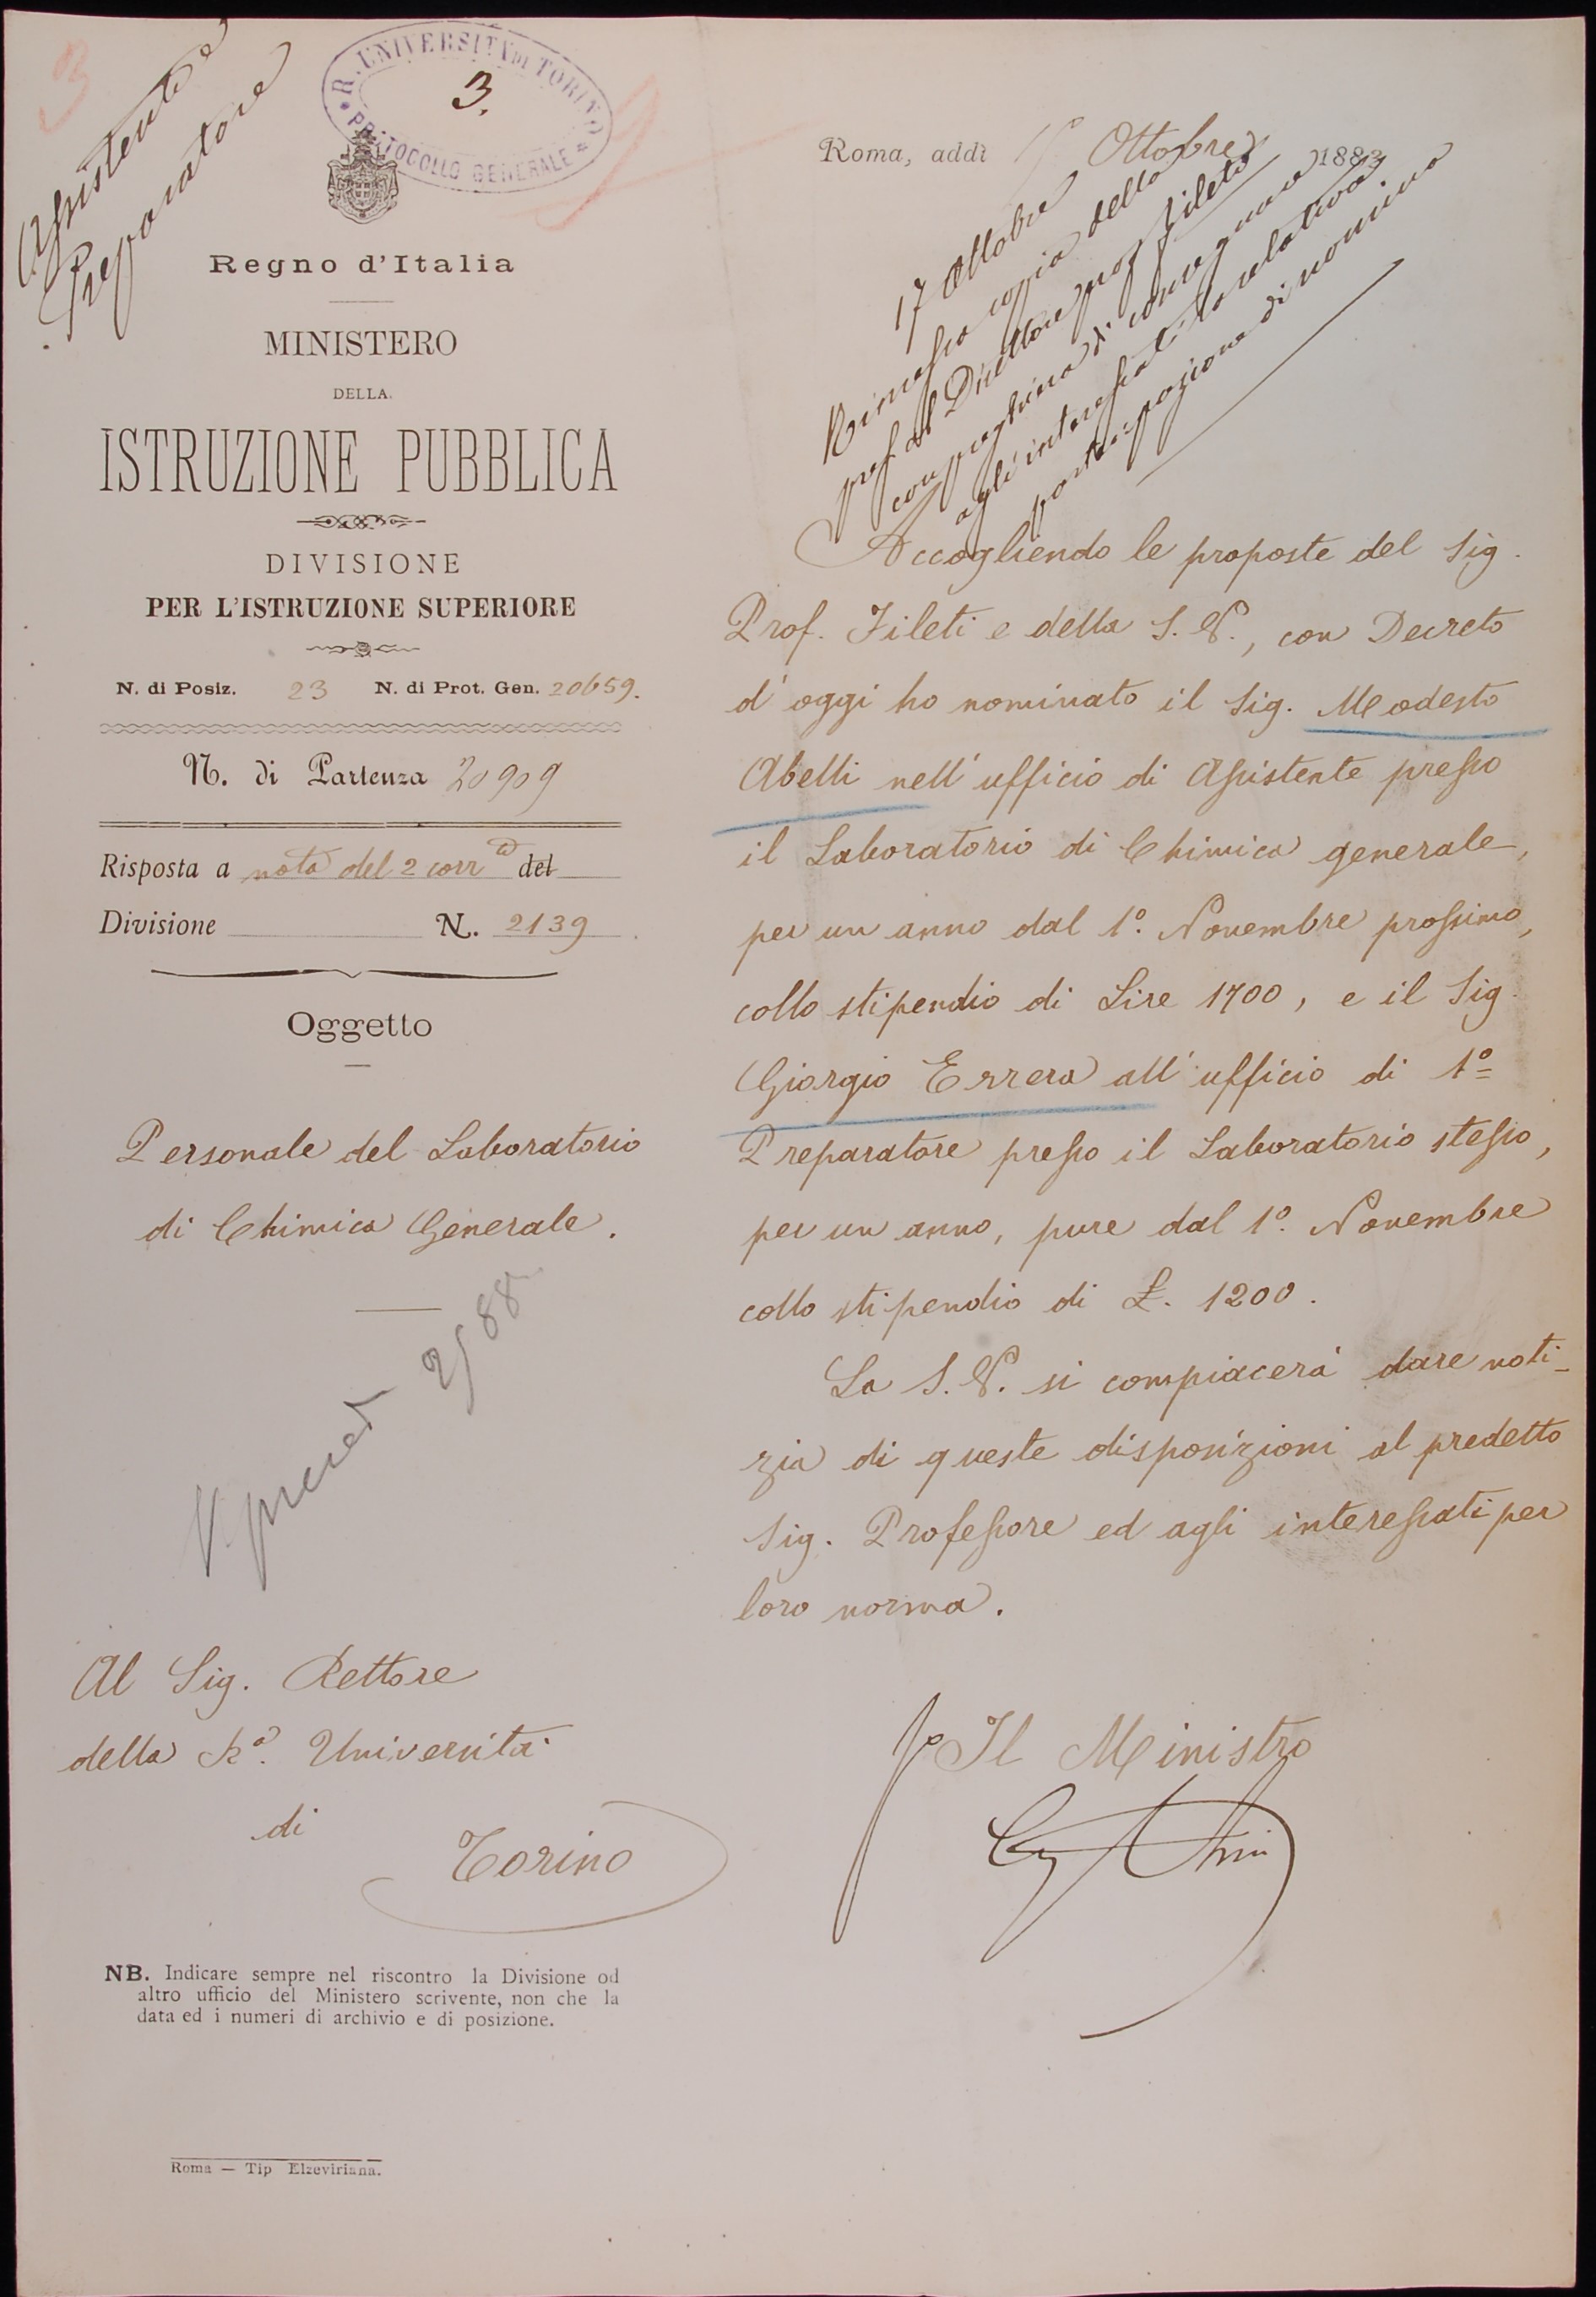 3
Assistente e
Preparatore
R. UNIVERSITÀ DI TORINO
3.
PROTOCOLLO GENERALE
Regno d'Italia
MINISTERO
DELLA
ISTRUZIONE PUBBLICA
DIVISIONE
PER L'ISTRUZIONE SUPERIORE
N. di Posiz. 23 N. di Prot. Gen. 20659.
N. di Partenza 20909
Risposta a nota del 2 corr.te del
Divisione N. 2139
Oggetto
Personale del Laboratorio
di Chimica Generale.
V. preced 2/88
Al Sig. Rettore
della R.a Università
di
Torino
NB. Indicare sempre nel riscontro la Divisione od
altro ufficio del Ministero scrivente, non che la
data ed i numeri di archivio e di posizione.
Roma — Tip Elzeviriana.
Roma, addì Ottobre 1883
17 Ottobre
Rimessa copia della
pres. al Direttore prof Fileti
con preghiera di consegnare
agli interessati la relativa
partecipazione di nomina
Accogliendo le proposte del Sig.
Prof. Fileti e della S. V., con Decreto
d'oggi ho nominato il Sig. Modesto
Abelli nell'ufficio di Assistente presso
il Laboratorio di Chimica generale,
per un anno dal 1º. Novembre prossimo,
collo stipendio di Lire 1700, e il Sig.
Giorgio Errera all'ufficio di 1º
Preparatore presso il Laboratorio stesso,
per un anno, pure dal 1º. Novembre
collo stipendio di £. 1200.
La S. V. si compiacerà dare noti-
zia di queste disposizioni al predetto
Sig. Professore ed agli interessati per
loro norma.
Il Ministro